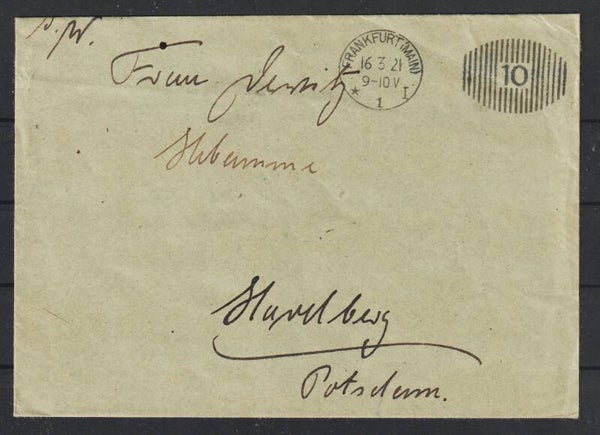 FRANKFURT (MAIN)
16 3 21
9-10 V
* 1 I
10
Frau Dewitz
Hebamme
Havelberg
Potsdam.